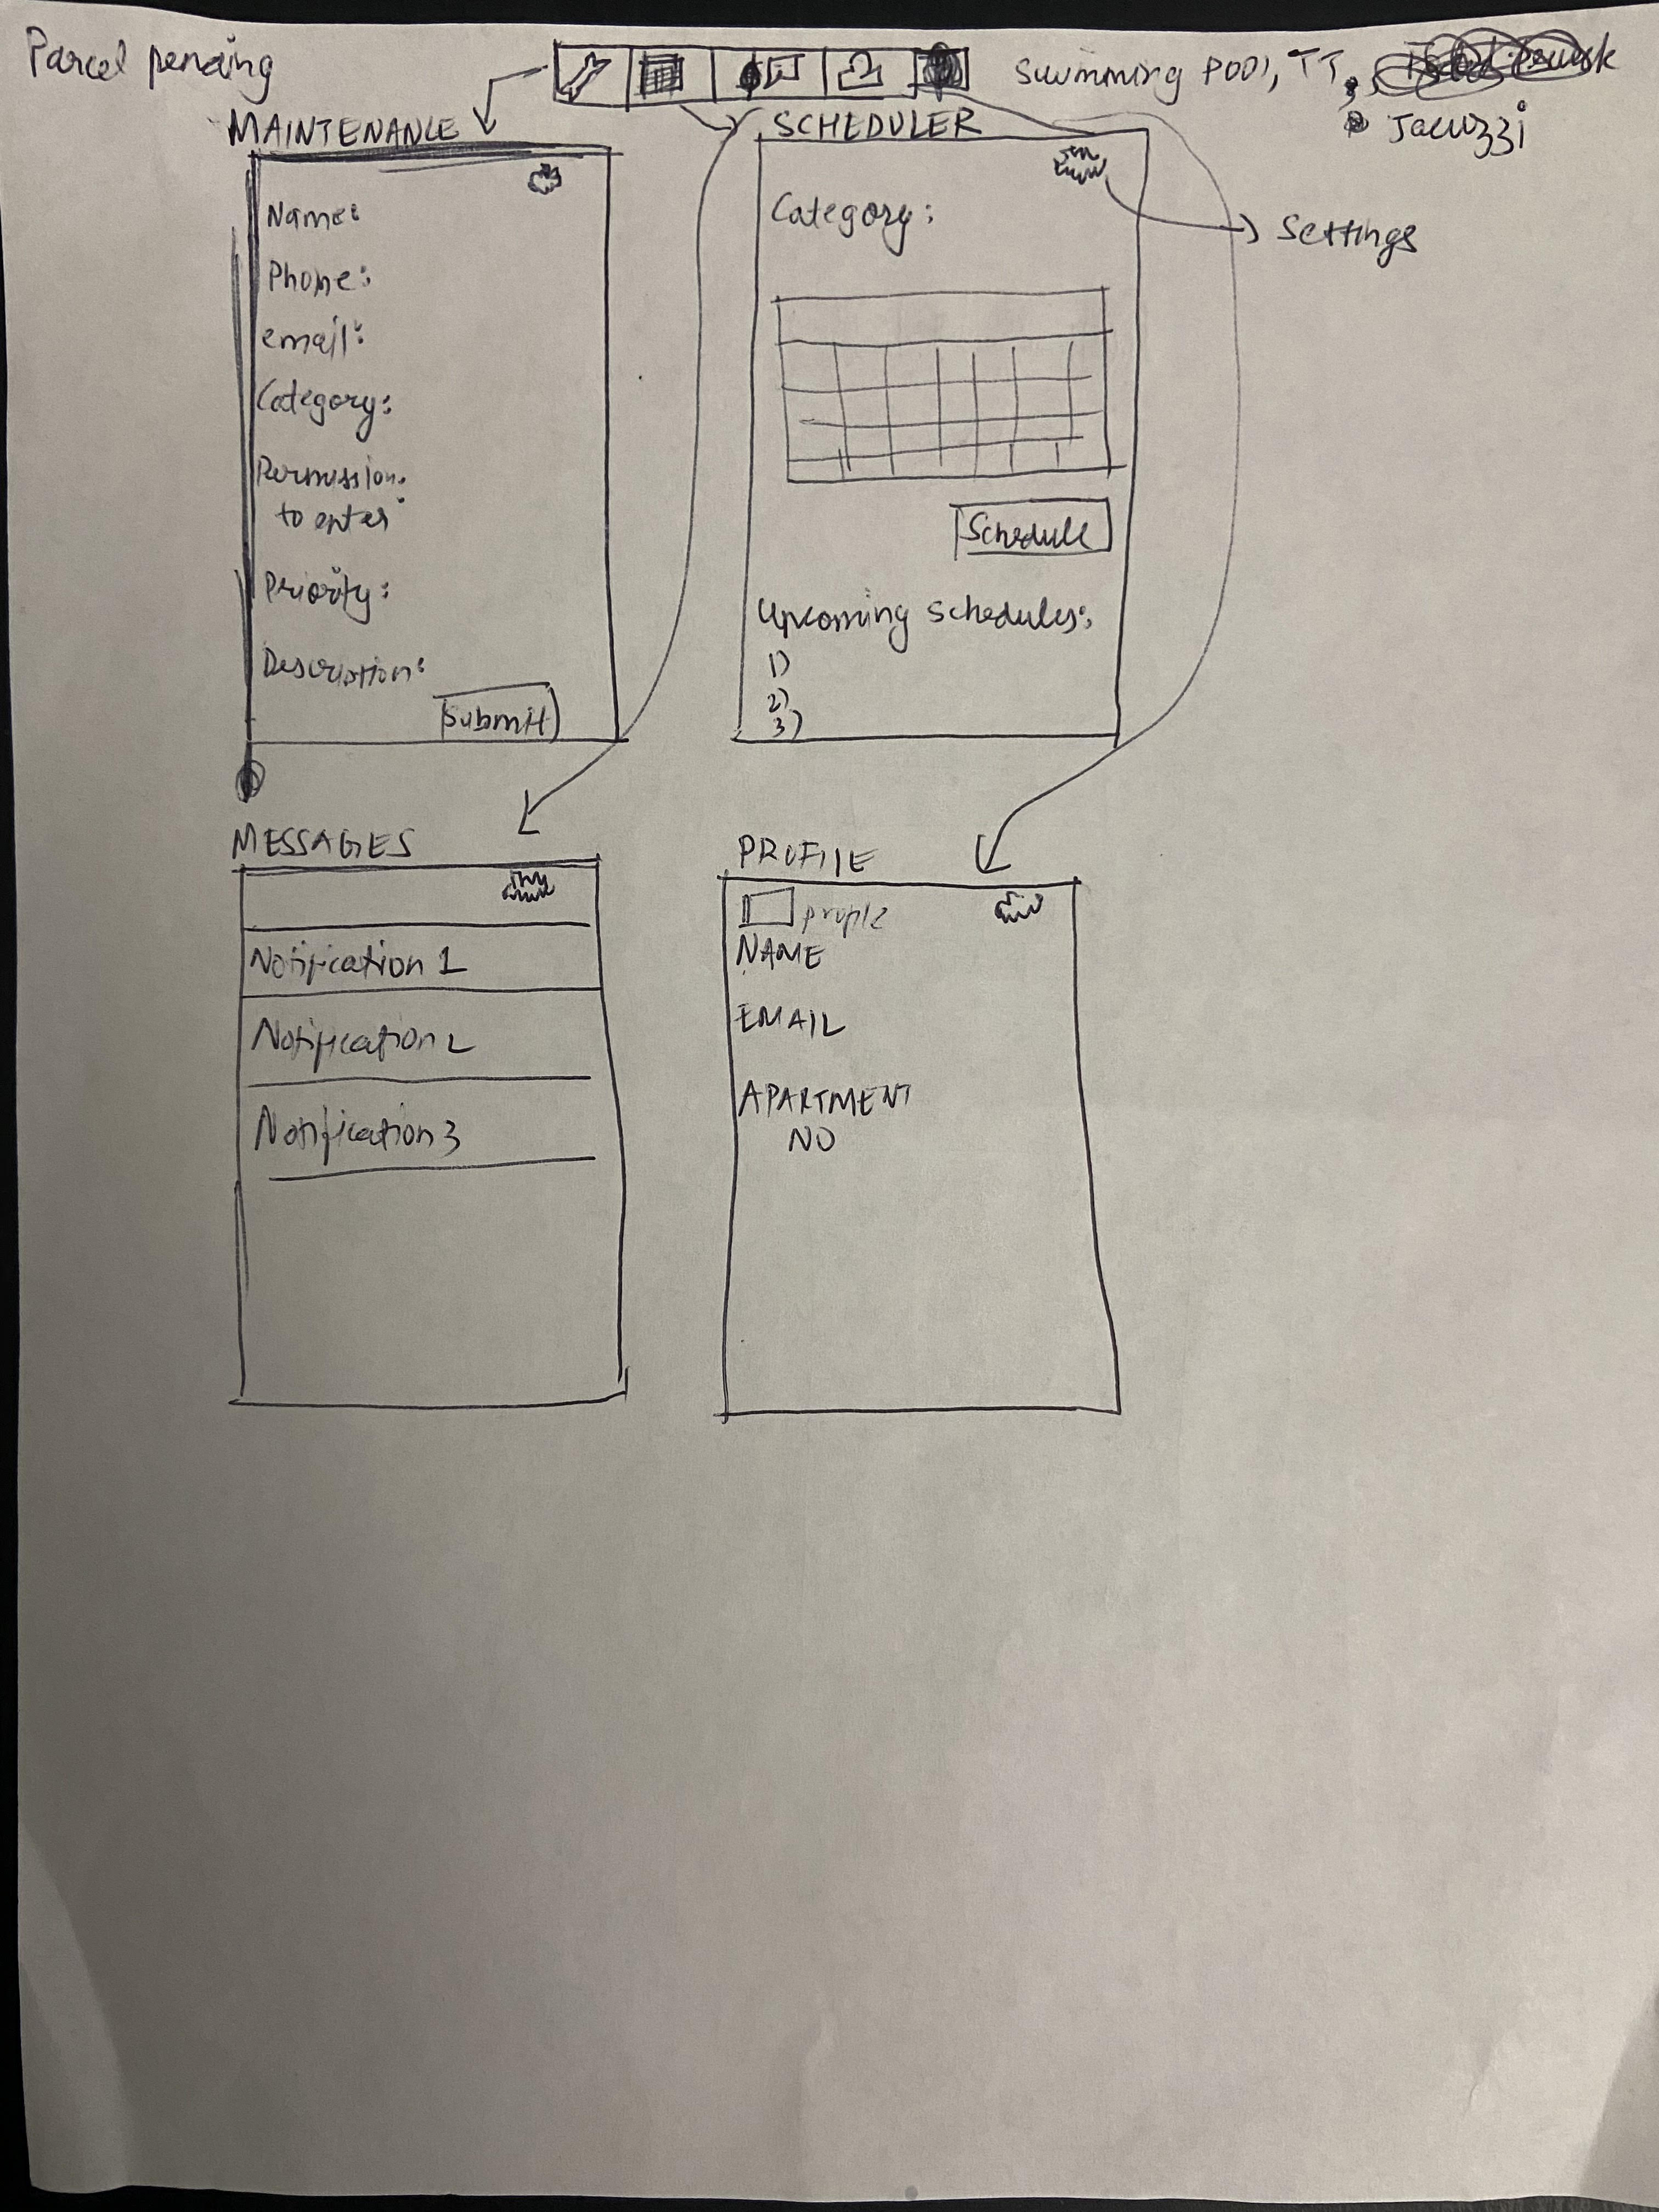 Parcel pending
Swimming Pool, TT,
Jacuzzi
MAINTENANCE
Name:
Phone:
email:
Category:
Permission
to enter:
Priority:
Description:
Submit
SCHEDULER
Category:
Settings
Schedule
Upcoming schedules:
1)
2)
3)
MESSAGES
Notification 1
Notification 2
Notification 3
PROFILE
NAME
EMAIL
APARTMENT
NO